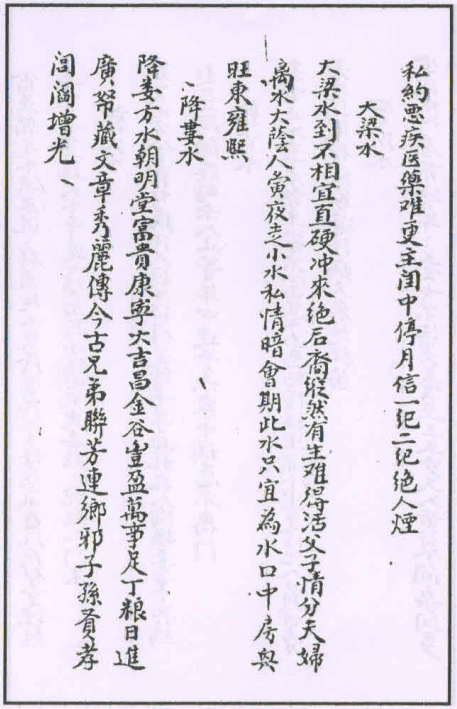 私約悪疾医藥难更主闺中停月信一纪二纪绝人煙
大梁水
大梁水到不相宜直硬冲來绝后裔縱然有生难得活父子情分夫婦
离水大陰人黄夜走小水私情暗會期此水只宜為水口中房興
旺東雍熙
降婁水
降娄方水朝明堂富貴康寧大吉昌金谷豊盈萬事足丁粮日進
廣帑藏文章秀麗傳今古兄弟聯芳連鄉邪子孫賢孝
闾閻增光